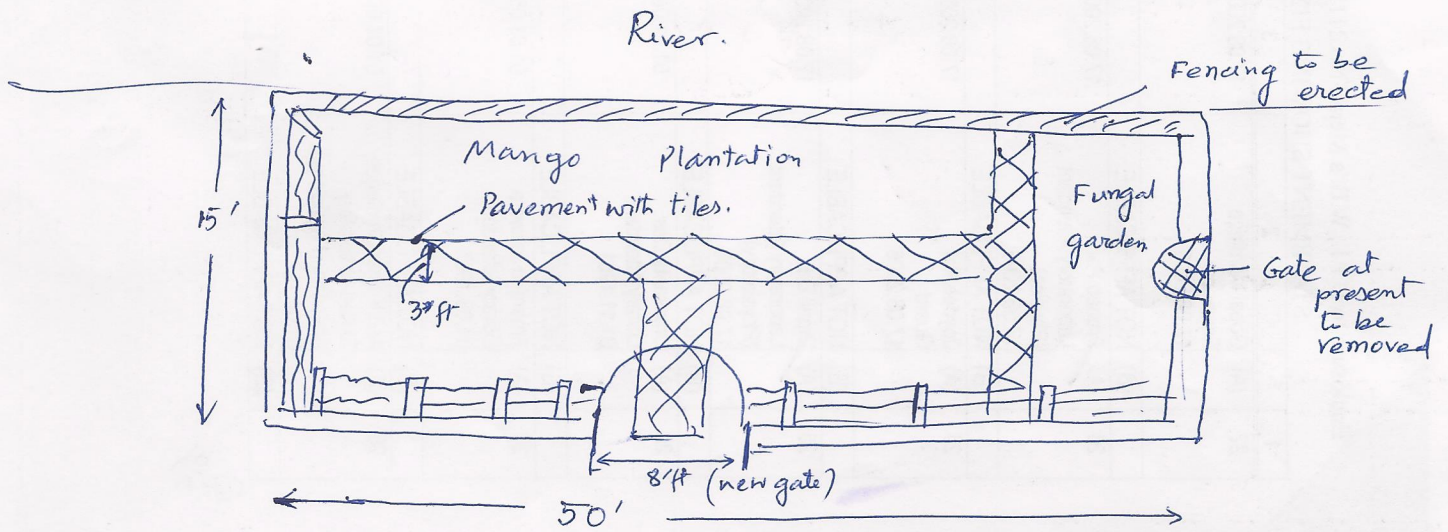 River.
Fencing to be
erected
Mango Plantation
15'
Pavement with tiles.
Fungal
garden
Gate at
present
to be
removed
3' ft
8' ft (new gate)
50'